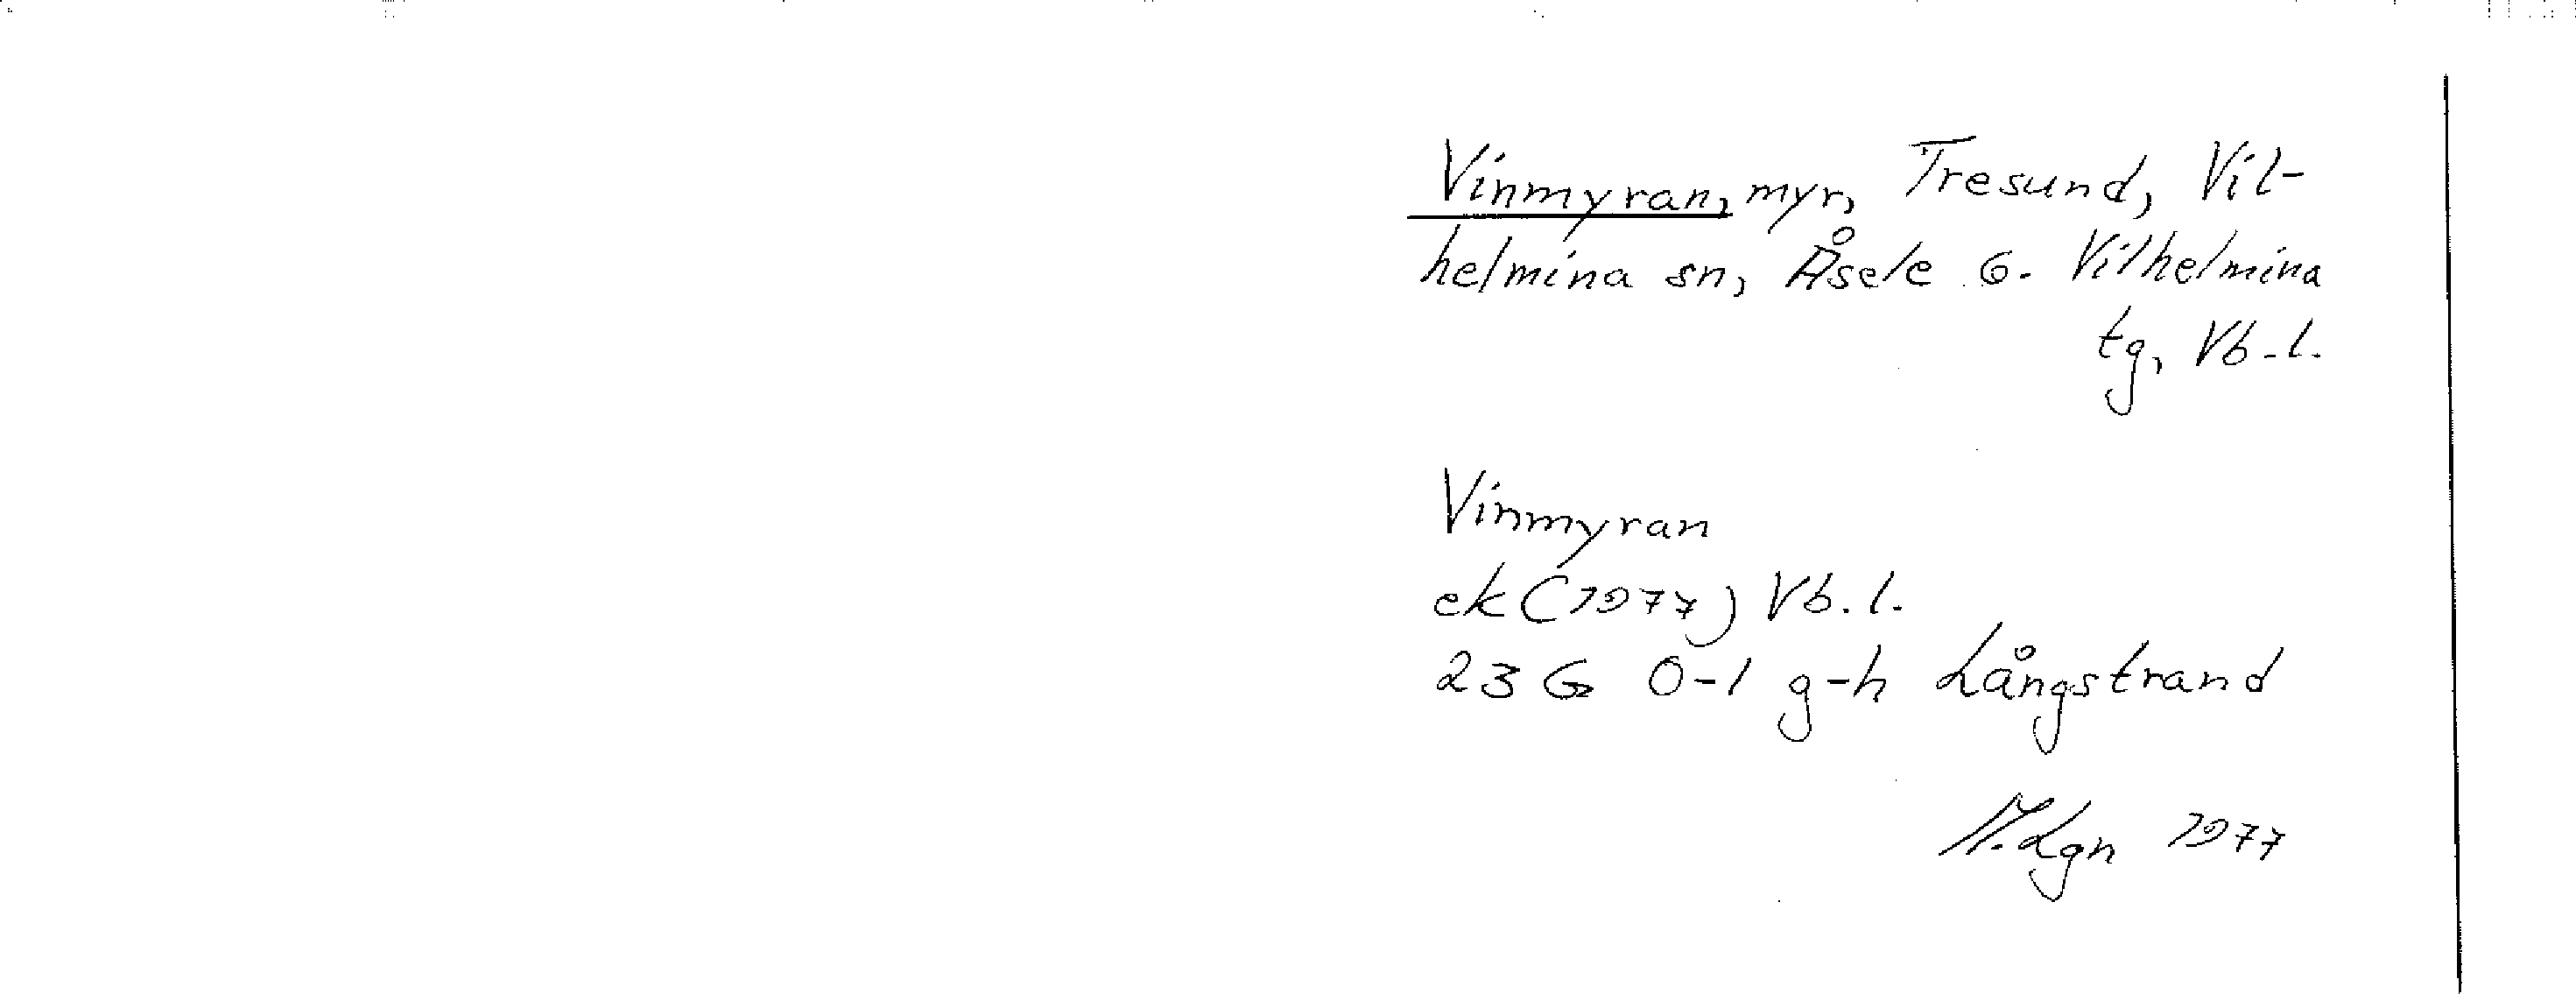 Vinmyran, myr, Tresund, Vil-
helmina sn, Åsele 6. Vilhelmina
tg, Vb.l.
Vinmyran
ek (1977) Vb.l.
23 G 0-1 g-h Långstrand
M.Lgn 1977